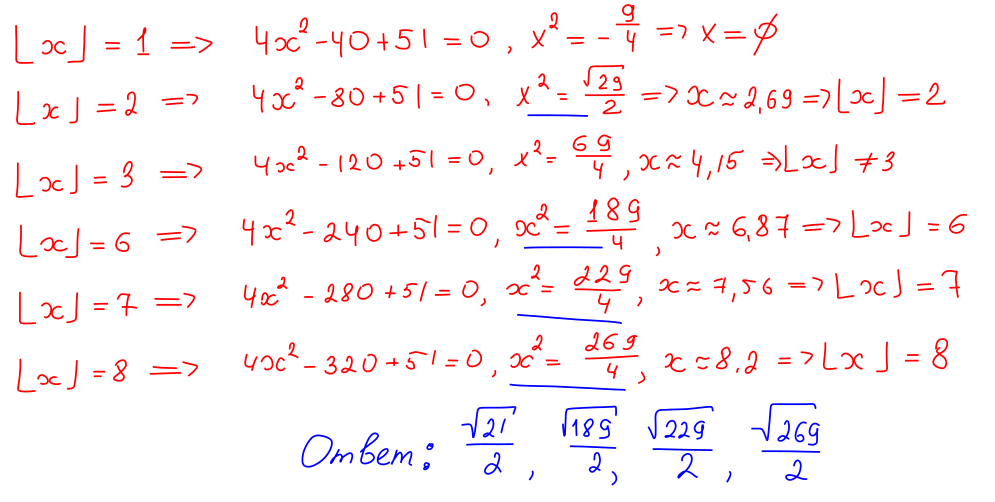 ⌊x⌋ = 1 => 4x² - 40 + 51 = 0, x² = - 9/4 => x = ∅
⌊x⌋ = 2 => 4x² - 80 + 51 = 0, x² = √29/2 => x ≈ 2,69 => ⌊x⌋ = 2
⌊x⌋ = 3 => 4x² - 120 + 51 = 0, x² = 69/4, x ≈ 4,15 => ⌊x⌋ ≠ 3
⌊x⌋ = 6 => 4x² - 240 + 51 = 0, x² = 189/4, x ≈ 6,87 => ⌊x⌋ = 6
⌊x⌋ = 7 => 4x² - 280 + 51 = 0, x² = 229/4, x ≈ 7,56 => ⌊x⌋ = 7
⌊x⌋ = 8 => 4x² - 320 + 51 = 0, x² = 269/4, x ≈ 8.2 => ⌊x⌋ = 8
Ответ: √21/2, √189/2, √229/2, √269/2